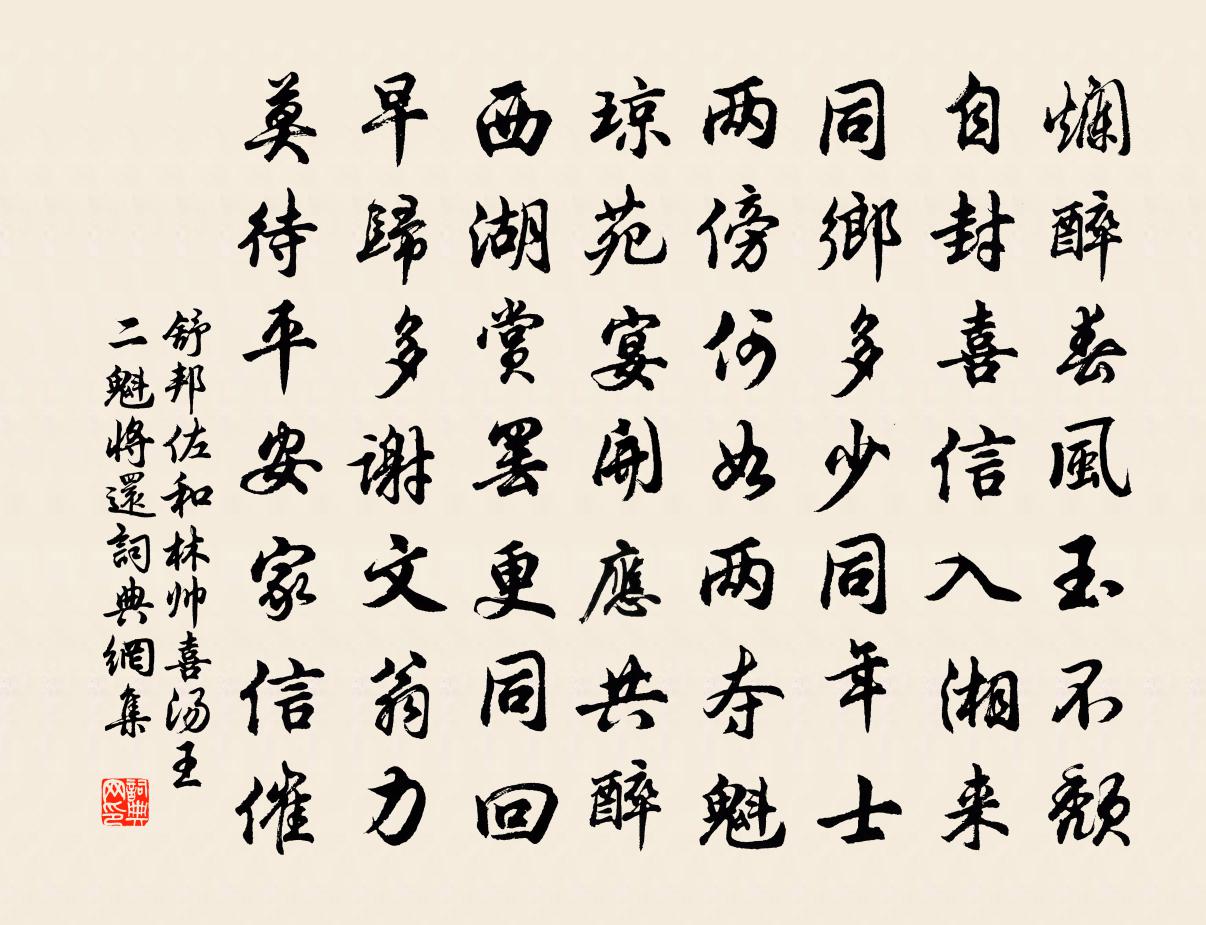 爛醉春風玉不頹
自封喜信入湘来
同鄉多少同年士
两傍何如两夺魁
琼苑宴開應共醉
西湖赏罢更同回
早歸多谢文翁力
莫待平安家信催
舒邦佐和林帅喜汤王
二魁將還詞典網集
詞典
网印